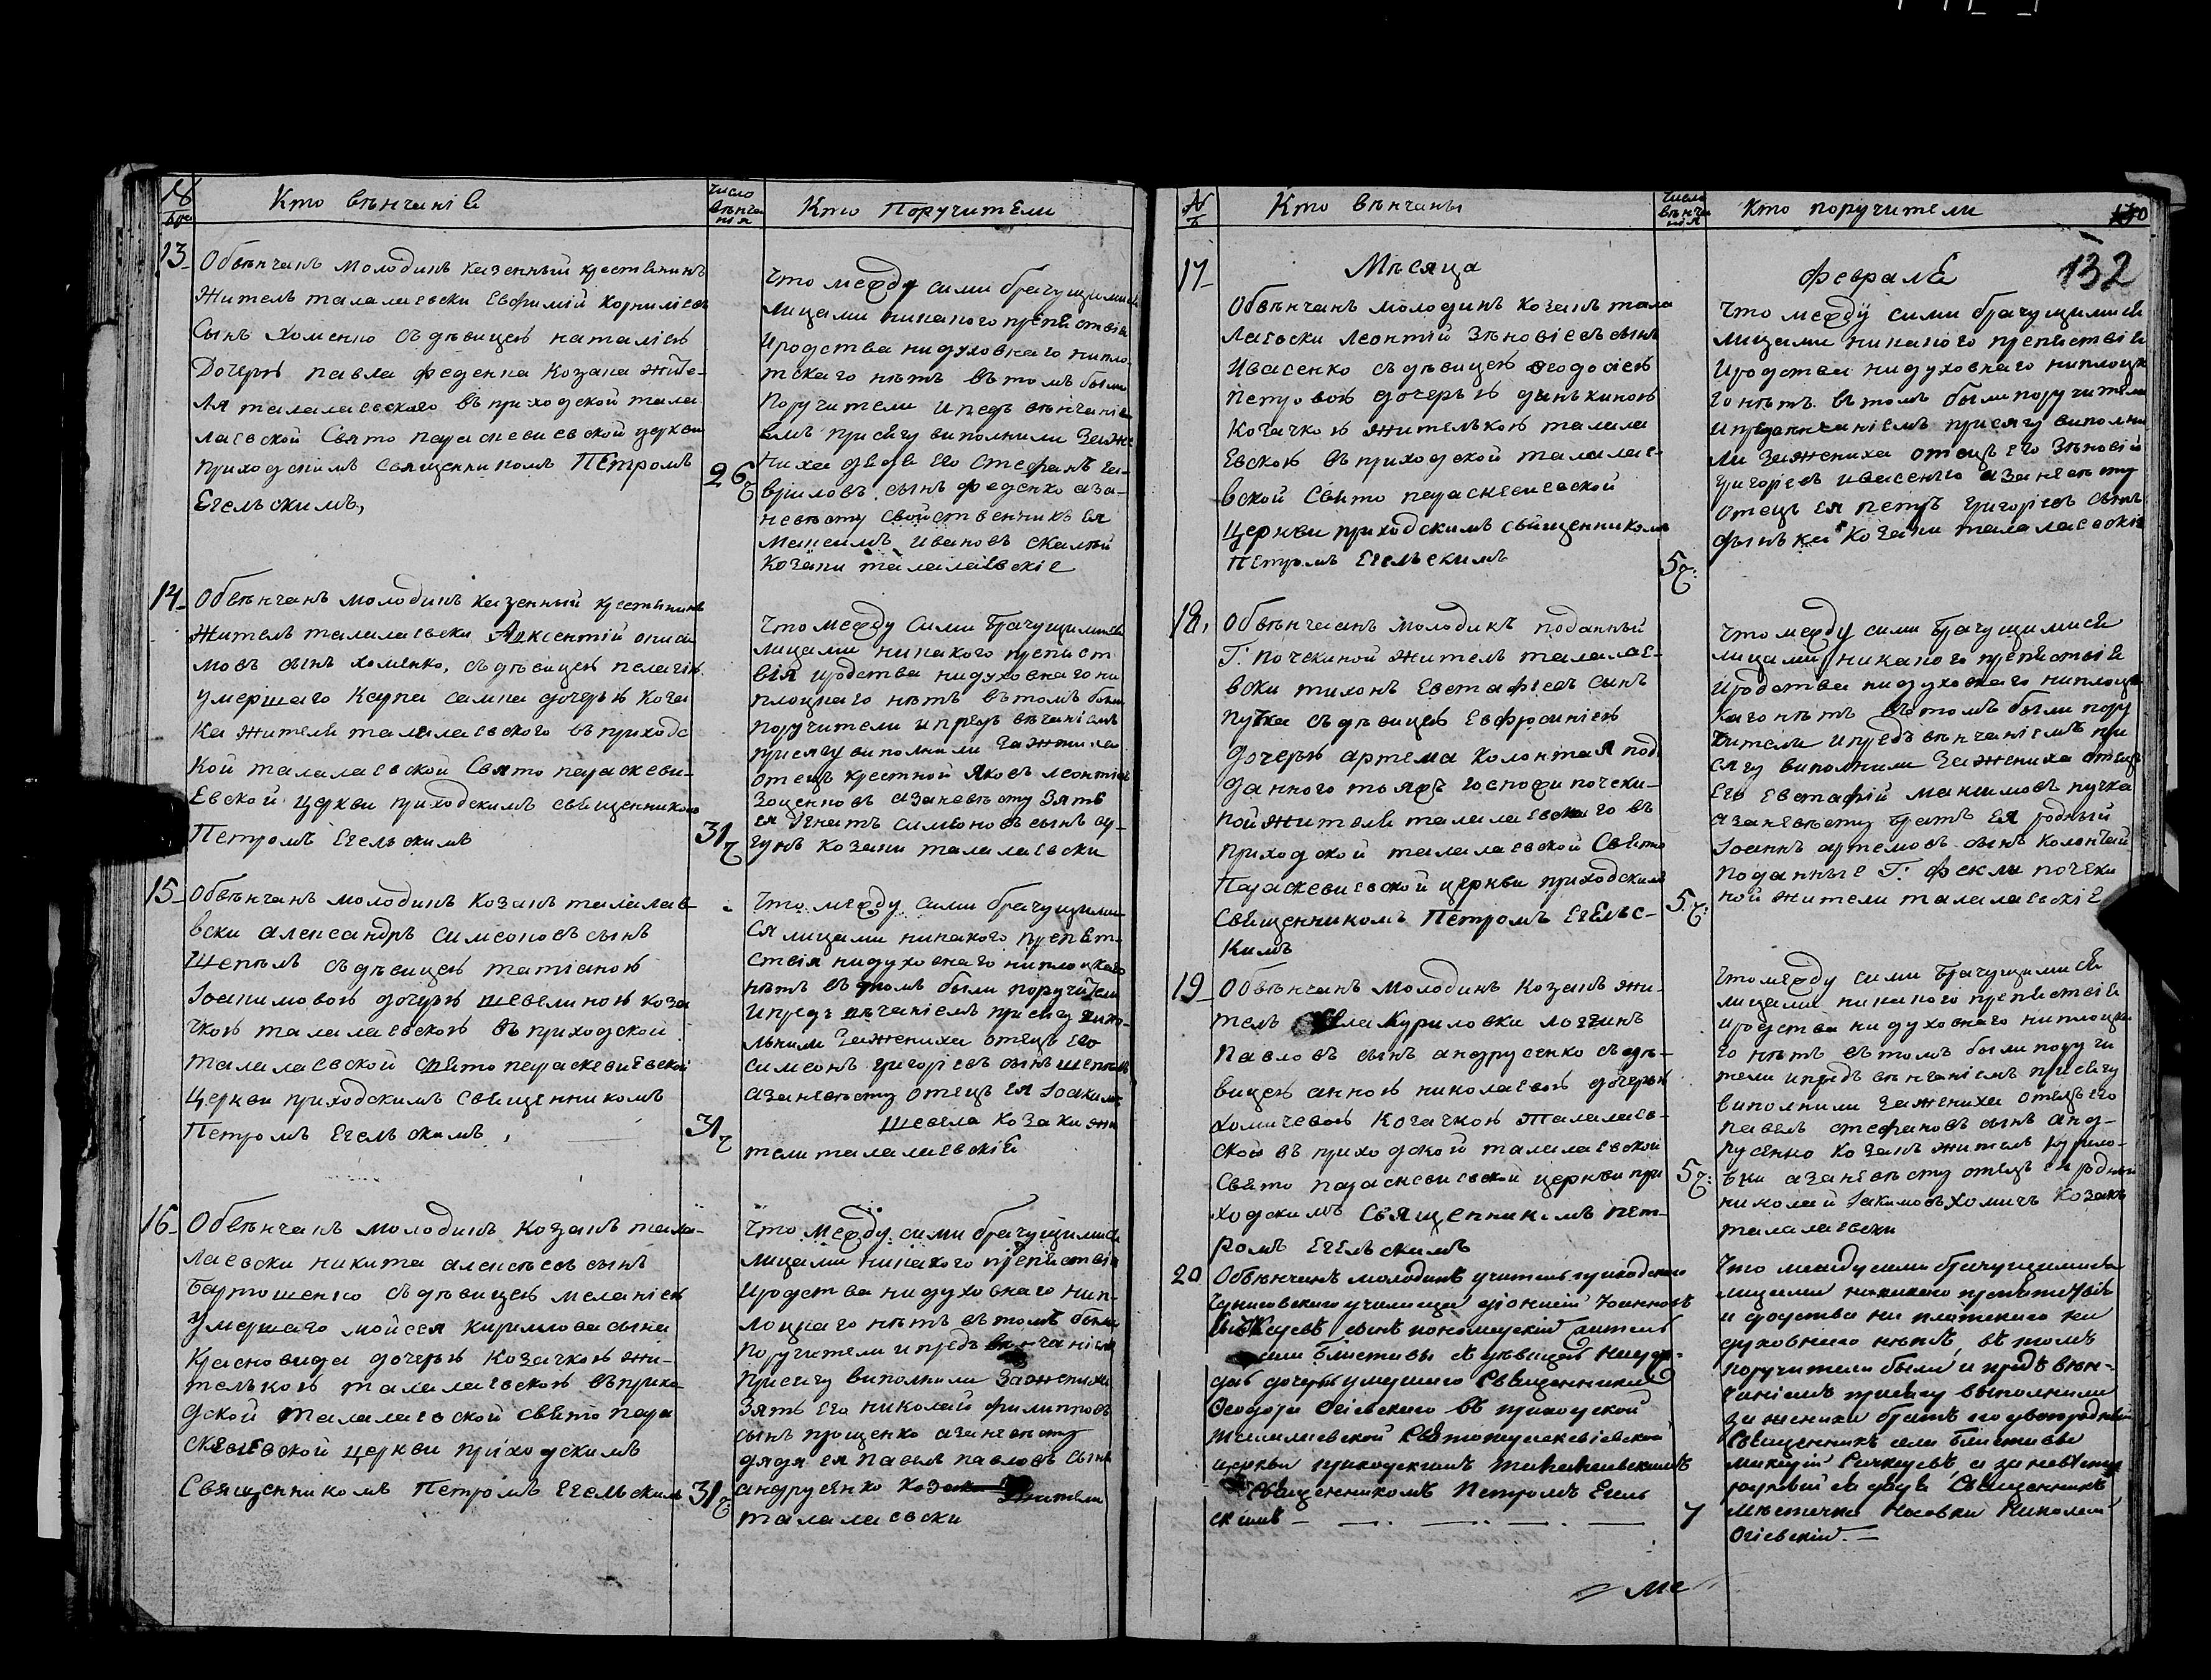 Кто вѣнчаніе
Число вѣнчанія
Кто Поручители
13
Обвѣнчанъ молодикъ казенный крестянинъ
Жител талалаевски Евфимій Корнилиевъ
Сынъ Хоменко съ дѣвицею наталіею
Дочерю павла феденка козака жите-
ля талалаевского въ приходской тала
лаевской Свято параскевиевской церкви
приходскимъ священникомъ Петромъ
Егельскимъ,
26
Что между сими брачущимися
лицами никакого препятствія
и родства ни духовнаго ни пло-
тскаго нѣтъ въ томъ были
Поручители и предъ вѣнчаніе
емъ присягу виполнили За же
ниха дядя его Стефанъ га-
вриловъ сынъ феденко а за-
невѣсту свойственникъ ея
Максимъ Ивановъ скалпій
козаки талалаевскіе
14
Обвѣнчанъ молодикъ казенный крестянинъ
Жителъ талалаевски Авксентійониси
мовъ сынъ хоменко, съ дѣвицею пелагіею
умершаго Карпа самка дочерью коза
ка жителя талалаевского въ приходс
кой талалаевской Свято параскеви-
Евской церкви приходскимъ священникомъ
Петромъ Егельскимъ
31
Что между сими брачущимися
лицами никакого препятст
вія и родства ни духовнаго ни
плоцкаго нѣтъ въ томъ были
поручители и предъ вѣнчаніемъ
присягу виполнили За жениха
отецъ крестной Яковъ леонтіев
Зоценковъ а за невѣсту Зять
ея Игнатъ симеоновъ сынъ
козаки талалаевски
15
Обвѣнчанъ молодикъ козакъ талалае
вски александръ симеоновъ сынъ
Шепель съ дѣвицею татіаною
Іоакимовою дочерю шевелиною коза
чкою талалаевскою въ приходской
талалаевской свято параскевиевской
церкви приходскимъ священникомъ
Петромъ Егельскимъ,
31
Что между сими брачущими
ся лицами никакого препят-
ствія ни духовнаго ни плоцкаго
нѣтъ въ томъ были поручители
и предъ вѣнчаніемъ присягу випо-
лънили За жениха отецъ его
симеонъ григоріевъ сынъ шепель
а за невѣсту отецъ ея Іоакимъ
Шевела козаки жи
тели талалаевскіе
16
Обвѣнчанъ молодикъ козакъ тала-
лаевски никита алексѣевъ сынъ
Бартошенко съ дѣвицею меланіею
Умершаго мойсея кириллова сына
Красновида дочерю козачкою жи-
телькою талалаевскою въ прихо
дской талалаевской свято пара
скевиевской церкви приходскимъ
Священникомъ Петромъ Егельским
31
Что между сими брачущимися
лицами никакого препятствія
и родства ни духовнаго нип-
лоцкаго нѣтъ въ томъ были
поручители и предъ вѣнчаніем
присягу виполнили За жениха
Зять его николай филипповъ
сынъ прощенко а за невѣсту
дядя ея Павелъ павловъ сынъ
андрусенко жители
талалаевски
Кто вѣнчаны
Число вѣнчанія
Кто поручители
132
17
Мѣсяца
Февраля
Обвѣнчанъ молодикъ козакъ тала
лаевски Леонтій Зѣновіевъ сынъ
Ивасенко съ дѣвицею Ѳеодосіею
Петровою дочерью дынькиною
Козачкою жителькою талала
Евскою въ приходской талалае-
вской Свято параскевиевской
Церкви приходскимъ священникомъ
Петромъ Егельскимъ
5
Что между сими брачущимися
лицами никакого препятствія
и родства ни духовнаго ни плоцка
го нѣтъ въ томъ были поручители
и предвѣнчаніемъ присягу виполни
ли За жениха отецъ его Зѣновій
григоріевъ ивасенко а за невѣсту
отецъ ея петръ григоріевъ сынъ
дынька козаки талалаевскіе
18
Обвѣнчанъ молодикъ поданный
Г: почекиной жителъ талалае-
вски тихонъ Евстафіевъ сынъ
Пучка съ дѣвицею Евфросиніею
дочерью артема колонтая под
данного тояжъ госпожи почеки-
ной жителя талалаевского въ
приходской талалаевской Свято
Параскевиевской церкви приходским
священникомъ Петромъ Егельс-
кимъ
5
Что между сими брачущимися
лицами никакого препятствія
и родства ни духовнаго ни плоц
каго нѣтъ въ томъ были пору
чители и предъ вѣнчаніемъ при
сягу виполнили За жениха отецъ
Его Евстафій максимовъ пучка
а за невѣсту братъ ея родный
Іоаннъ артемовъ сынъ колонтай
поданные Г: феклы почеки
ной жители талалаевскіе
19
Обвѣнчанъ молодикъ козакъ жи-
телъ села Куриловки логгинъ
Павловъ сынъ андрусенко съ дѣ-
вицею анною николаевою дочерью
хомичевою козачкою талалаев-
скою въ приходской талалаевской
Свято параскевиевской церкви при
ходскимъ Священникомъ пет-
ромъ Егельскимъ
5
Что между сими брачущимися
лицами никакого препятствія
и родства ни духовнаго ни плоцка
го нѣтъ въ томъ были поручи
тели и предъ вѣнчаніемъ присягу
виполнили За жениха отецъ его
павелъ стефановъ сынъ анд-
русенко козакъ житель курило-
вки а за невѣсту отецъ ея родный
николай Іакимовъ хомичъ козакъ
талалаевски
20
Обвѣнчанъ молодикъ учитель приходского
училища діонисій Іоанновъ
сынъ пономарскій житель
Блистовы съ дѣвицею
дочерью умершаго Священника
Ѳеодора Огіевского въ приходской
Талалаевской Святопараскевіевской
церкви приходскимъ талалаевскимъ
Священникомъ Петромъ Егель
скимъ
7
Что между сими брачущимися
лицами никакого препятствія
и родства ни плотского ни
духовнаго нѣтъ, въ томъ
поручители были и предъ вѣн-
чаніемъ присягу выполнили
за жениха братъ его двоюродный
Священникъ села Блистовы
а за невѣсту
родный ея дядя Священникъ
мѣстечка Носовки Николай
Огіевскій.